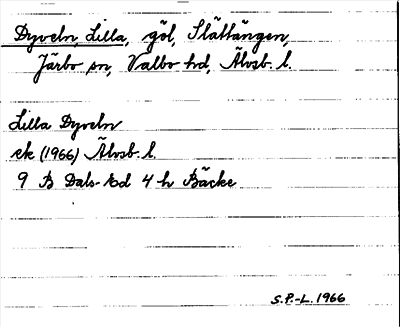 Dyveln, Lilla, göl, Slättängen,
Järbo sn, Valbo hd, Älvsb. l.
Lilla Dyveln
ek (1966) Älvsb. l.
9 B Dals-Ed 4 h Bäcke
S.P.-L. 1966